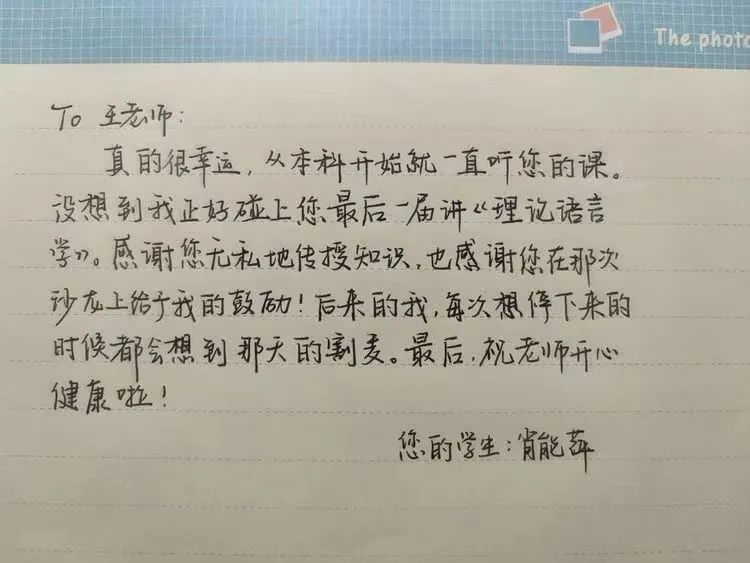 The photo
To 王老师：
真的很幸运，从本科开始就一直听您的课。
没想到我正好碰上您最后一届讲《理论语言
学》。感谢您无私地传授知识，也感谢您在那次
沙龙上给予我的鼓励！后来的我，每次想停下来的
时候都会想到那天的割麦。最后，祝老师开心
健康啦！
您的学生：肖能萍